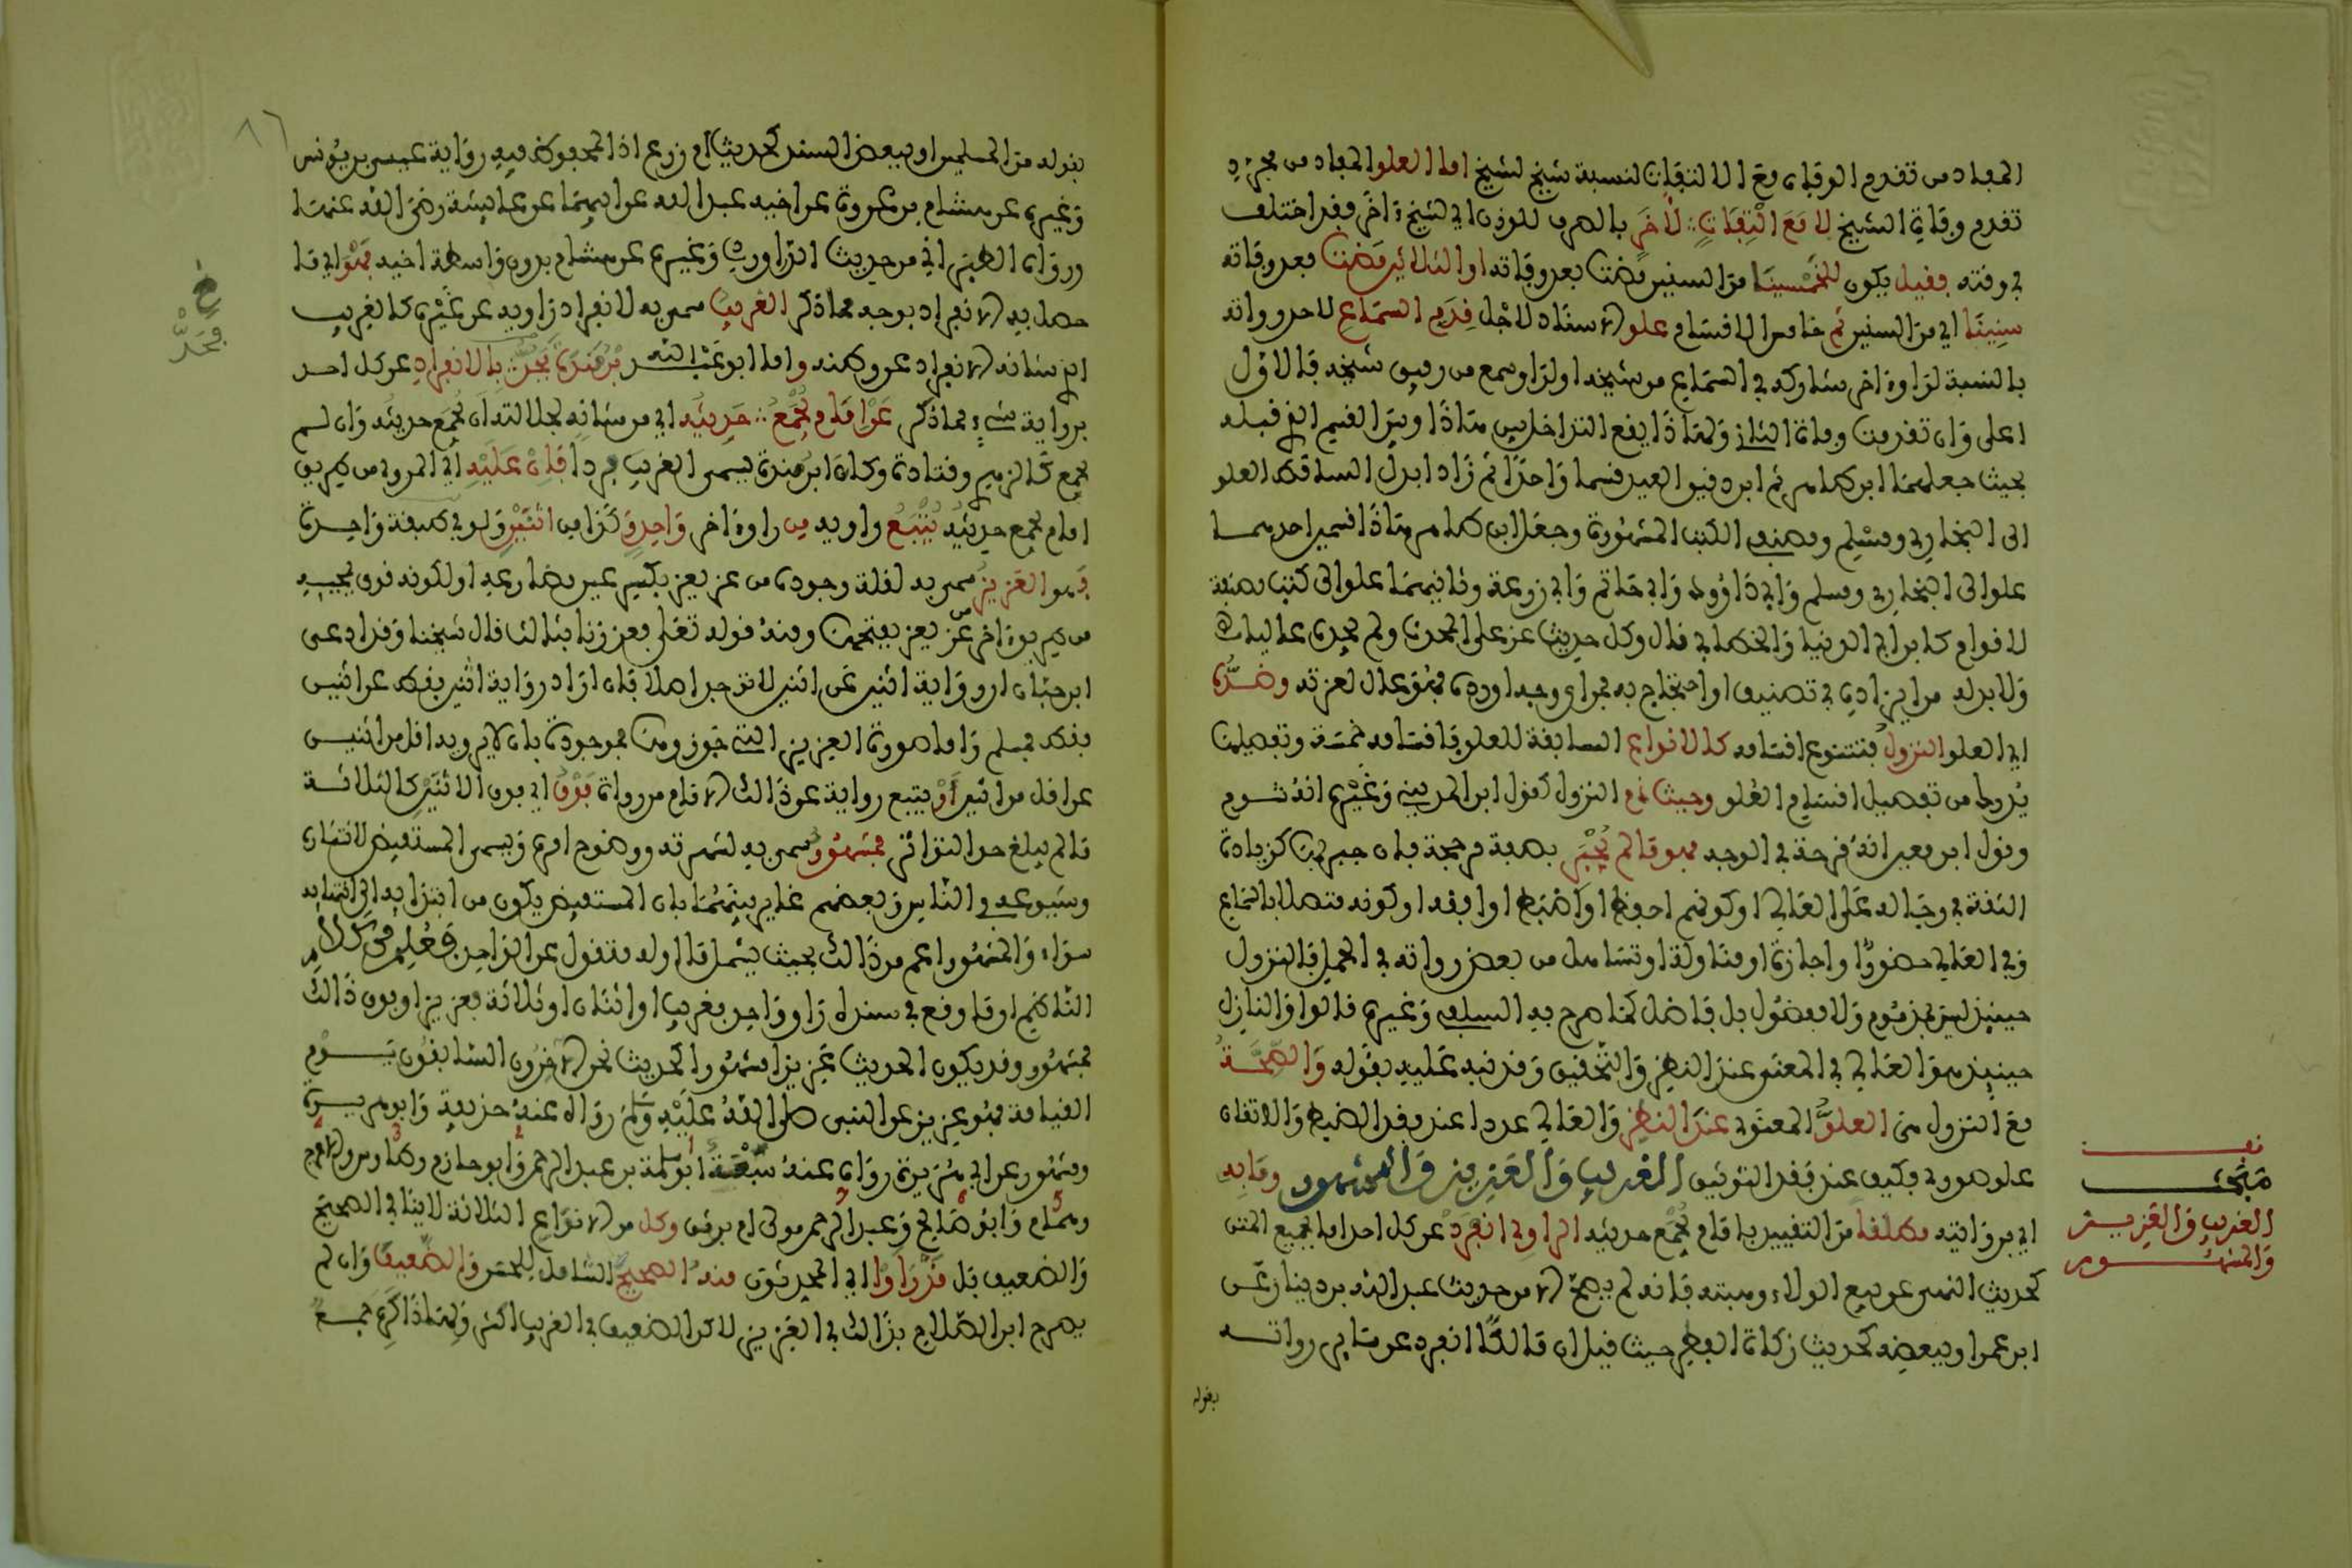 المفاد من تقدم الوفاة مع الالتفات لنسبة شيخ لشيخ اما العلو المفاد من مجرد
تقدم وفاة الشيخ لا مع التفات لآخر بالصرف للوزن اي لشيخ آخر فقد اختلف
في وقته فقيل يكون للخمسينا من السنين مضت بعد وفاته او الثلاثين مضت بعد وفاته
سنينا اي من السنين ثم خامس الاقسام علو الاسناد لاجل قدم السماع لاحد رواته
بالنسبة لراو آخر شاركه في السماع من شيخه او لراو سمع من رفيق شيخه فالاول
اعلى وان تقدمت وفاة الثاني ولهذا يقع التداخل بين هذا وبين القسم الذي قبله
بحيث جعلهما ابن طاهر ثم ابن دقيق العيد قسما واحدا ثم زاد ابدل الساقط العلو
الى البخاري ومسلم ومصنفي الكتب المشهورة وجعل ابن طاهر هذا قسمين احدهما
علو الى البخاري ومسلم وابي داوود وابي حاتم وابي زرعة وثانيهما علو الى كتب مصنفة
لاقوام كابن ابي الدنيا والخطابي قال وكل حديث عز على المحدث ولم يجده عاليا
ولا بد له من ايراده في تصنيف او احتجاج به فمن اي وجه اورده فهو عال لعزته وضده
اي العلو النزول فتتنوع اقسامه كالانواع السابقة للعلو فاقسامه خمسة وتفصيلها
يدرك من تفصيل اقسام العلو وحيث ذم النزول كقول ابن المديني وغيره انه شوم
وقول ابن معين انه قرحة في الوجه فهو ما لم يجبر بصفة مرجحة فان جبر بها كزيادة
الثقة في رجاله على العالي او كونهم احفظ او اضبط او افقه او كونه متصلا بالسماع
وفي العالي حضور او اجازة او مناولة او تساهل من بعض رواته في الحمل فالنزول
حينئذ ليس بمذموم ولا مفضول بل فاضل كما صرح به السلفي وغيره قالوا والنازل
حينئذ هو العالي في المعنى عند النظر والتحقيق وقد نبه عليه بقوله والصحة
مع النزول هي العلو المعنوي عند النظر والعالي عددا عند فقد الضبط والاتقان
علو صوري فكيف عند فقد التوثيق الغريب والعزيز والمشهور وما به
اي بروايته مطلقا من التقييد بامام يجمع حديثه الراوي انفرد عن كل احد اما بجميع المتن
كحديث النهي عن بيع الولاء وهبته فانه لم يصح الا من حديث عبد الله بن دينار عن
ابن عمر او ببعضه كحديث زكاة الفطر حيث قيل ان مالكا انفرد عن سائر رواته
بقوله
مبحث
الغريب والعزيز
والمشهور
٨٦
بقوله من المسلمين او ببعض السند كحديث ام زرع اذ المحفوظ فيه رواية عيسى بن يونس
وغيره عن هشام بن عروة عن اخيه عبد الله عن ابيهما عن عائشة رضي الله عنها
ورواه الطبراني من حديث الدراوردي وغيره عن هشام بدون واسطة اخيه فهو اي ما
حصل به الانفراد بوجه مما ذكر الغريب سمي به لانفراد راويه عن غيره كالغريب
الذي شانه الانفراد عن وطنه واما ابو عبد الله بن منده فحد بالانفراد عن كل احد
برواية شيء مما ذكر عن امام يجمع حديثه اي من شانه لجلالته ان يجمع حديثه وان لم
يجمع كالزهري وقتادة وكان ابن منده يسمى الغريب فردا فان عليه اي المروي من طريق
امام يجمع حديثه يتبع راويه من راو آخر واحد وكذا من اثنين ولو في طبقة واحدة
فهو العزيز سمي به لقلة وجوده من عز يعز بكسر عين مضارعه او لكونه قوي بمجيئه
من طريق آخر من عز يعز بفتحها ومنه قوله تعلى فعززنا بثالث قال شيخنا وقد ادعى
ابن حبان ان رواية اثنين عن اثنين لا توجد اصلا فان اراد رواية اثنين فقط عن اثنين
فقط فمسلم واما صورة العزيز التي جوزوها فموجودة بان لا يرويه اقل من اثنين
عن اقل من اثنين او يتبع رواية عن ذالك الامام من رواة فوق اي فوق الاثنين كالثلاثة
ما لم يبلغ حد التواتر فمشهور سمي به لشهرته ووضوح امره ويسمى المستفيض لانتشاره
وشيوعه في الناس وبعضهم غاير بينهما بان المستفيض يكون من ابتدائه الى انتهائه
سواء والمشهور اعم من ذالك بحيث يشمل ما اوله منقول عن الواحد فعلم من كلام
الناظم ان ما وقع في سنده راو واحد فغريب او اثنان او ثلاثة فعزيز او فوق ذالك
فمشهور وقد يكون الحديث عزيزا مشهورا كحديث نحن الآخرون السابقون يوم
القيامة فهو عزيز عن النبي صلى الله عليه وسلم رواه عنه حذيفة وابو هريرة
ومشهور عن ابي هريرة رواه عنه سبعة ابو سلمة بن عبد الرحمن وابو حازم وطاوس والاعرج
وهمام وابو صالح وعبد الرحمن مولى ام برثن وكل من الانواع الثلاثة لا ينافي الصحيح
والضعيف بل قد راوا اي المحدثون منه الصحيح الشامل للحسن والضعيفا وان لم
يصرح ابن الصلاح بذالك في العزيز لاكن الضعيف في الغريب اكثر ولهذا كره جمع